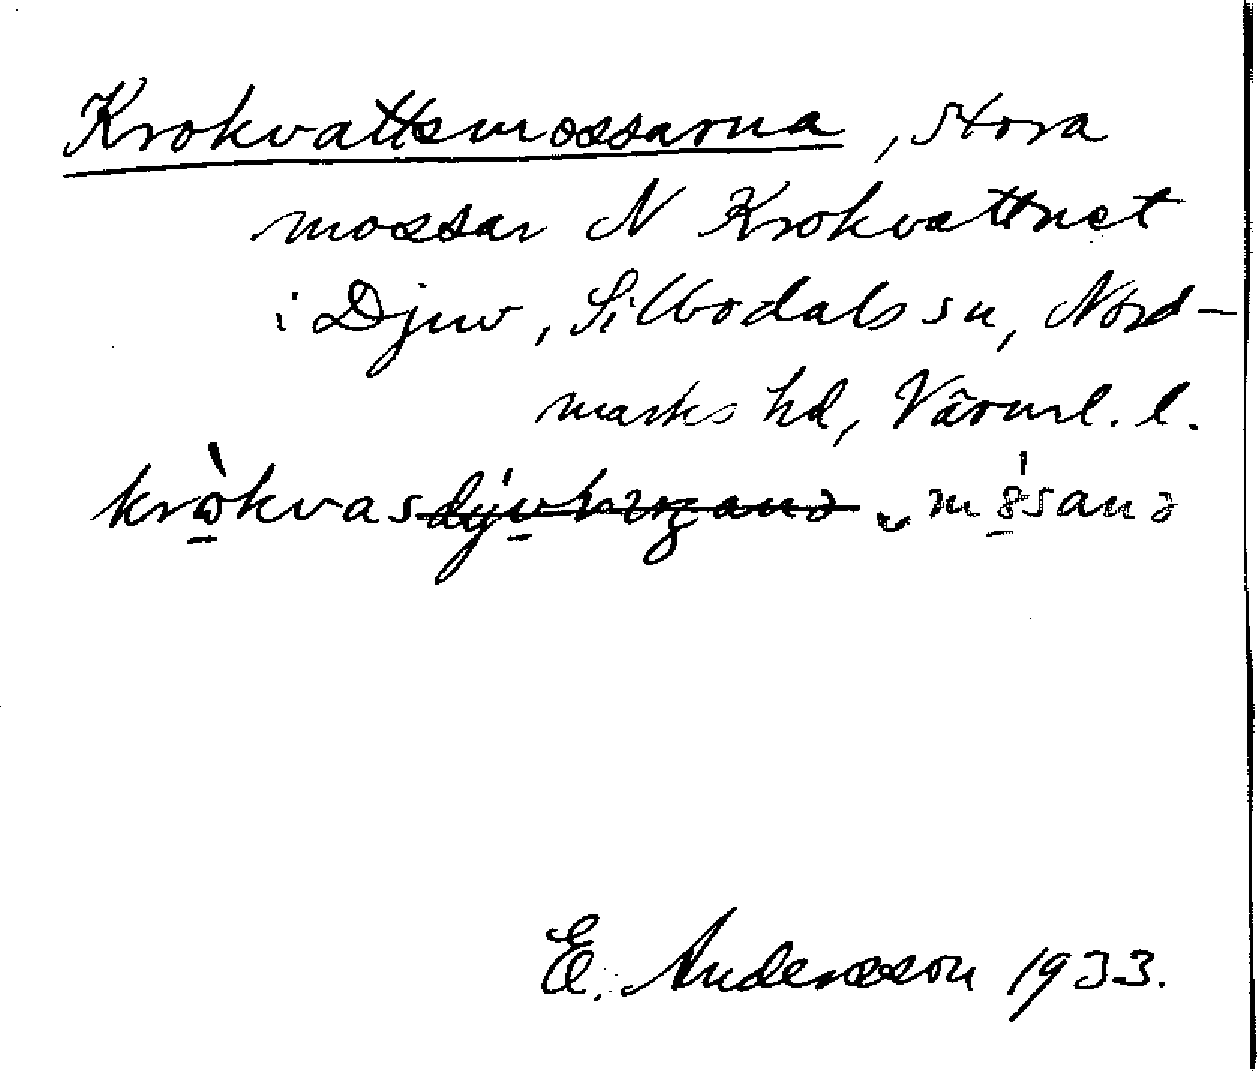 Krokvattsmossarna, stora
mossar N Krokvattnet
i Djuv, Silbodals sn, Nord-
marks hd, Värml. l.
kròkvas mósanə
E. Andersson 1933.